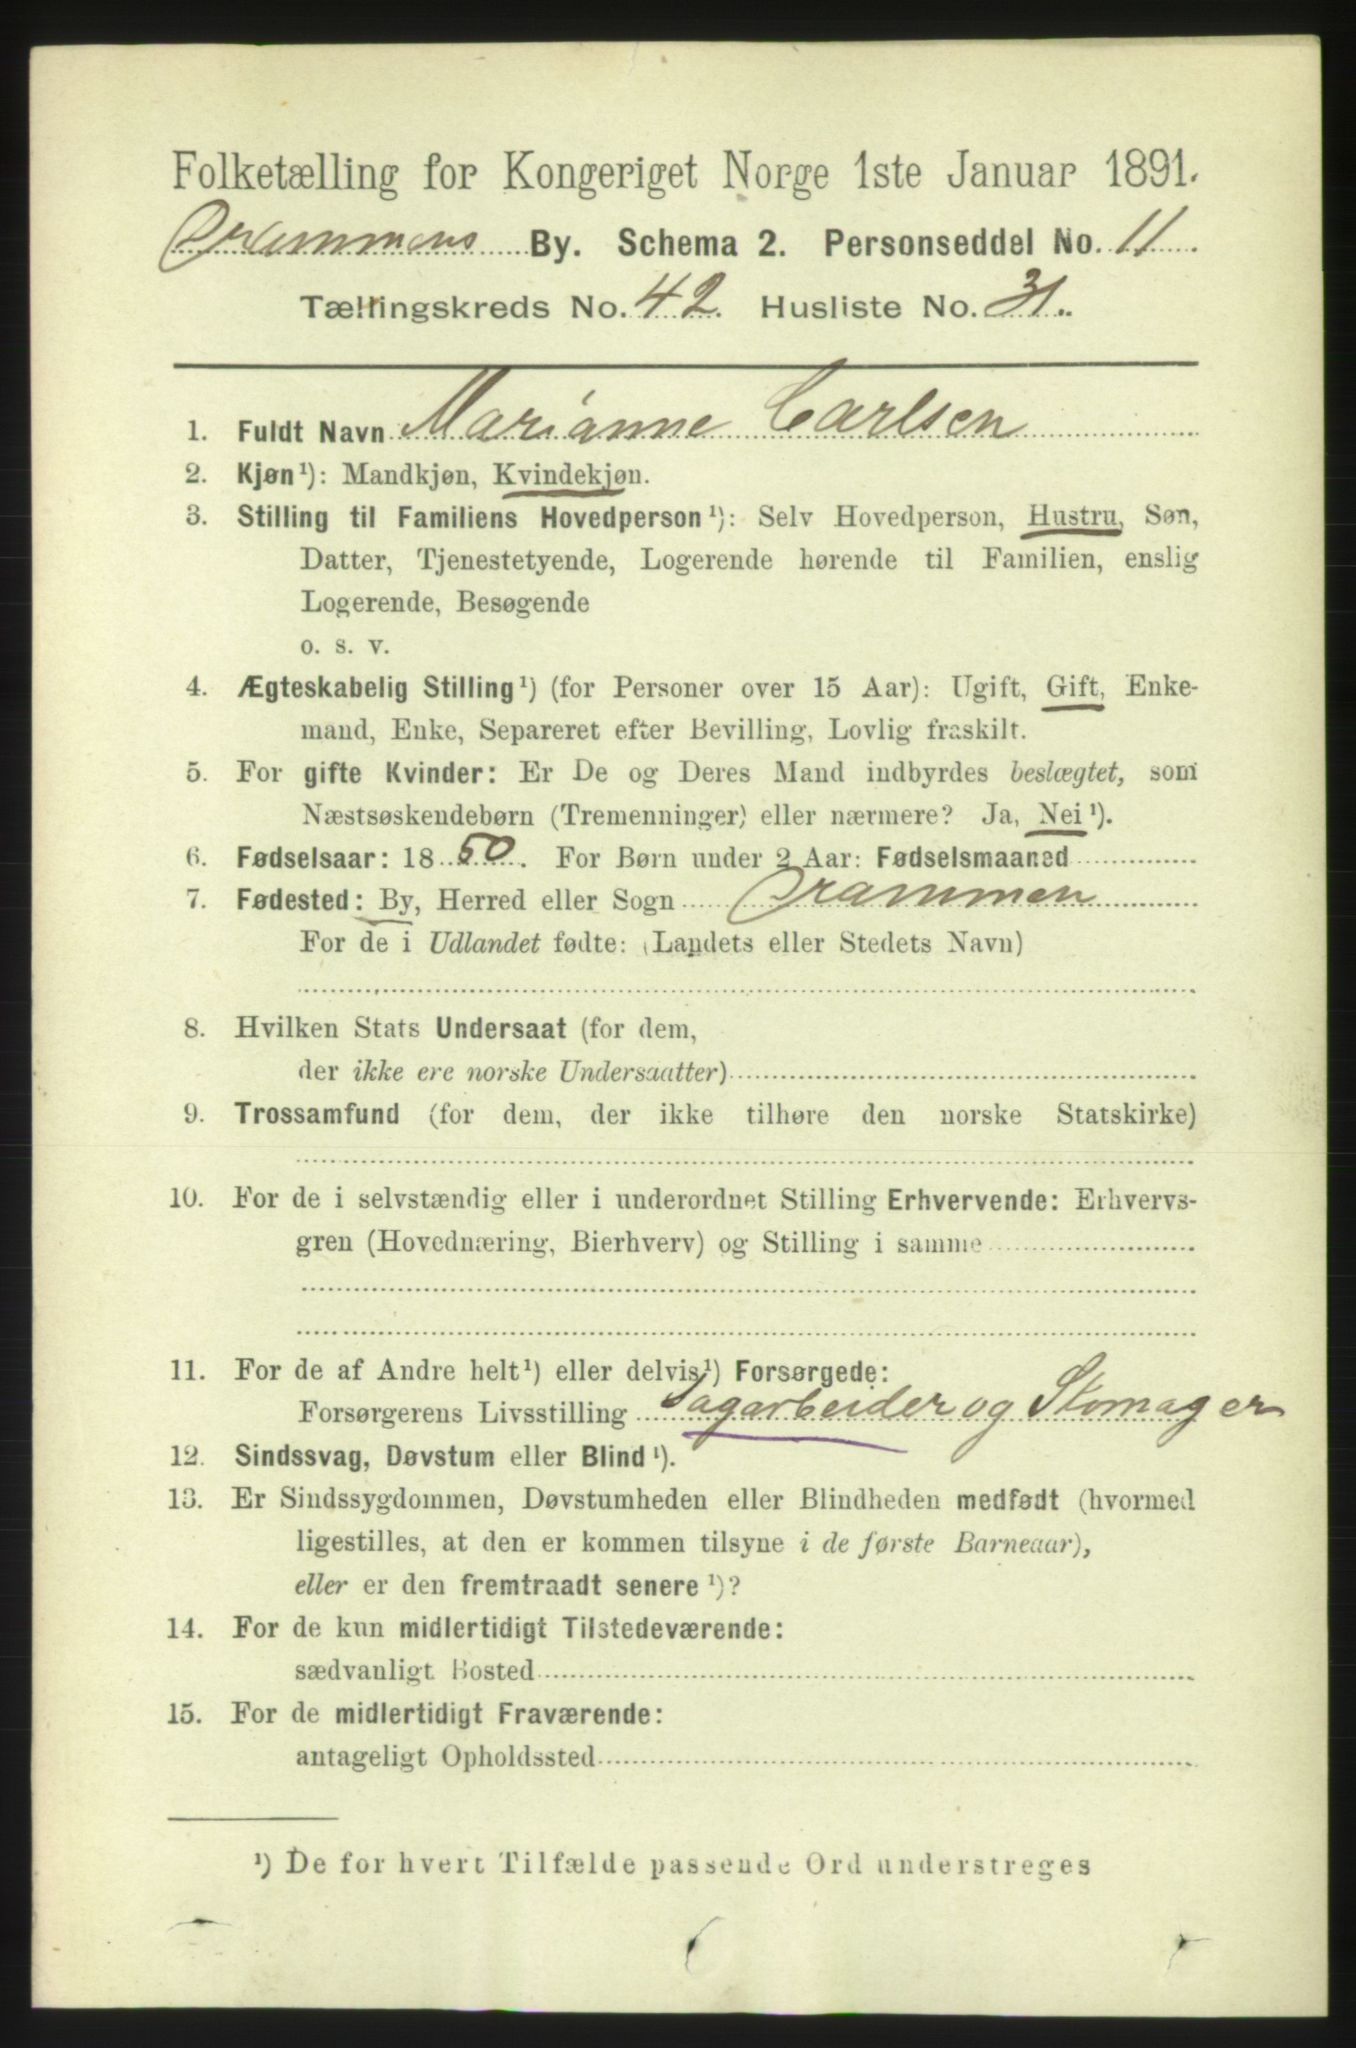 Folketælling for Kongeriget Norge 1ste Januar 1891.
Drammens By. Schema 2. Personseddel No. 11.
Tællingskreds No. 42. Husliste No. 31.
1. Fuldt Navn Marianne Carlsen
2. Kjøn¹): Mandkjøn, Kvindekjøn.
3. Stilling til Familiens Hovedperson¹): Selv Hovedperson, Hustru, Søn,
Datter, Tjenestetyende, Logerende hørende til Familien, enslig
Logerende, Besøgende
o. s. v.
4. Ægteskabelig Stilling¹) (for Personer over 15 Aar): Ugift, Gift, Enke-
mand, Enke, Separeret efter Bevilling, Lovlig fraskilt.
5. For gifte Kvinder: Er De og Deres Mand indbyrdes beslægtet, som
Næstsøskendebørn (Tremenninger) eller nærmere? Ja, Nei¹).
6. Fødselsaar: 1850. For Børn under 2 Aar: Fødselsmaaned
7. Fødested: By, Herred eller Sogn Drammen
For de i Udlandet fødte: (Landets eller Stedets Navn)
8. Hvilken Stats Undersaat (for dem,
der ikke ere norske Undersaatter)
9. Trossamfund (for dem, der ikke tilhøre den norske Statskirke)
10. For de i selvstændig eller i underordnet Stilling Erhvervende: Erhvervs-
gren (Hovednæring, Bierhverv) og Stilling i samme
11. For de af Andre helt¹) eller delvis¹) Forsørgede:
Forsørgerens Livsstilling Sagarbeider og Skomager
12. Sindssvag, Døvstum eller Blind¹).
13. Er Sindssygdommen, Døvstumheden eller Blindheden medfødt (hvormed
ligestilles, at den er kommen tilsyne i de første Barneaar),
eller er den fremtraadt senere¹)?
14. For de kun midlertidigt Tilstedeværende:
sædvanligt Bosted
15. For de midlertidigt Fraværende:
antageligt Opholdssted
¹) De for hvert Tilfælde passende Ord understreges